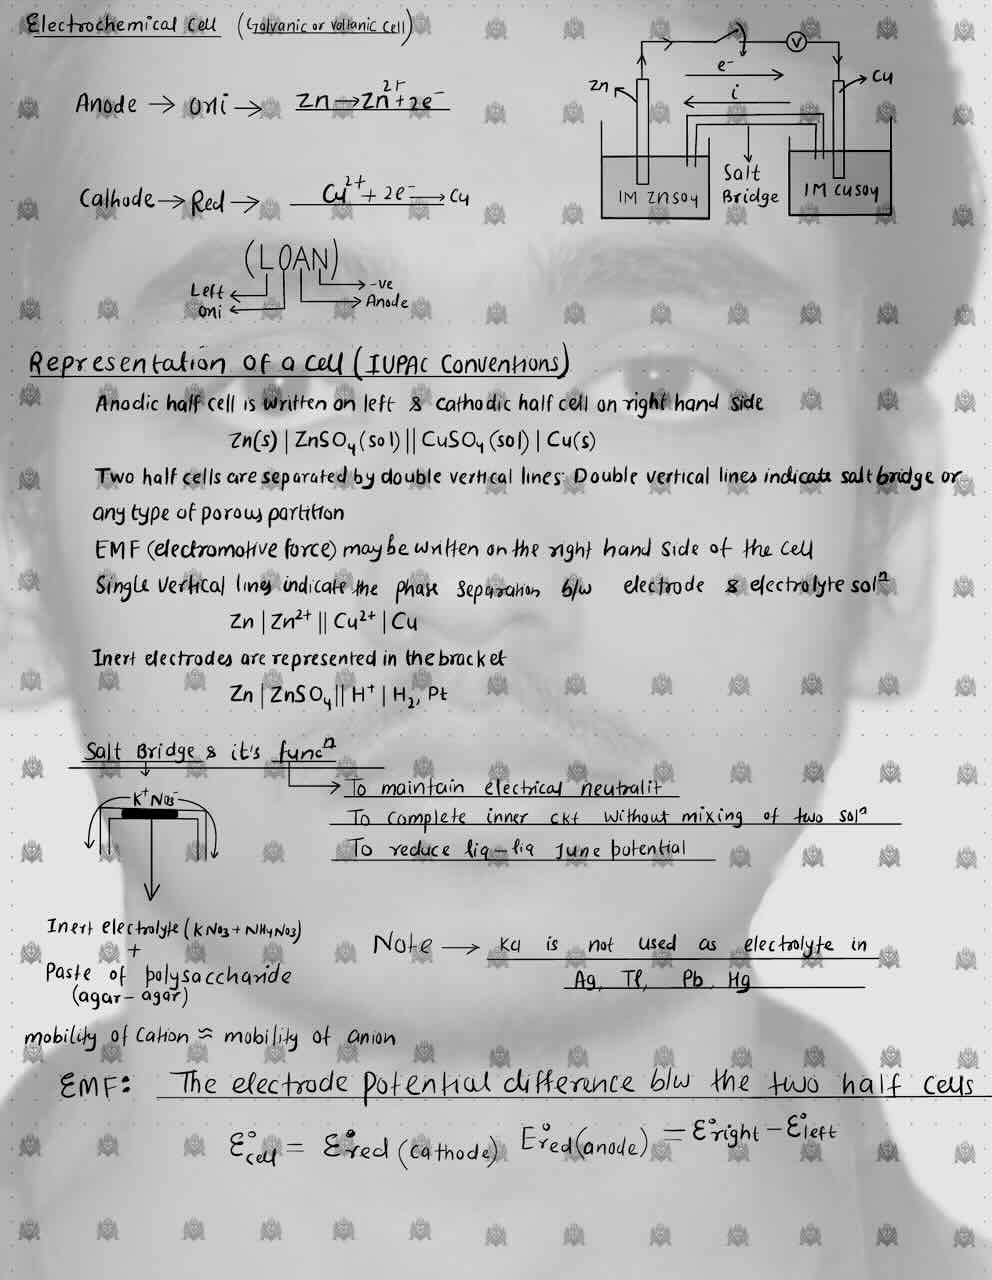 Electrochemical Cell (Galvanic or Voltanic Cell)
Anode → Oni → Zn → Zn²⁺ + 2e⁻
Cathode → Red → Cu²⁺ + 2e⁻ → Cu
Zn
V
Cu
e⁻
i
Salt
Bridge
1M ZnSO4
1M CuSO4
(LOAN)
Left
Oni
-ve
Anode
Representation of a Cell (IUPAC Conventions)
Anodic half cell is written on left & cathodic half cell on right hand side
Zn(s) | ZnSO₄ (sol) || CuSO₄ (sol) | Cu(s)
Two half cells are separated by double vertical lines. Double vertical lines indicate salt bridge or
any type of porous partition
EMF (electromotive force) may be written on the right hand side of the cell
Single vertical lines indicate the phase separation b/w electrode & electrolyte solⁿ
Zn | Zn²⁺ || Cu²⁺ | Cu
Inert electrodes are represented in the bracket
Zn | ZnSO₄ || H⁺ | H₂, Pt
Salt Bridge & it's funcⁿ
K⁺ NO₃⁻
To maintain electrical neutralit
To complete inner ckt without mixing of two solⁿ
To reduce liq-liq June potential
Inert electrolyte (KNO3 + NH4NO3)
+
Paste of polysaccharide
(agar-agar)
Note → KCl is not used as electrolyte in
Ag, Tl, Pb, Hg
mobility of Cation ≈ mobility of anion
EMF: The electrode potential difference b/w the two half cells
E°cell = E°red (cathode) E°red (anode) = E°right - E°left